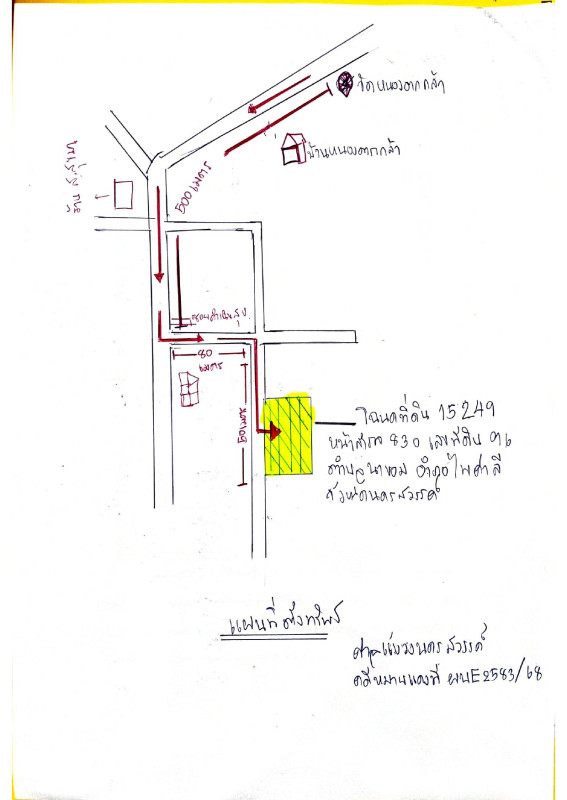 วัดหนองตากล้า
บ้านหนองตากล้า
500 เมตร
80
เมตร
โฉนดที่ดิน 15249
หน้าสำรวจ 830 เลขที่ดิน 96
ตำบลนาขอม อำเภอไพศาลี
จังหวัดนครสวรรค์
แผนที่ตั้งทรัพย์
ศาลแขวงนครสวรรค์
คดีหมายเลขแดงที่ ผบE2583/68